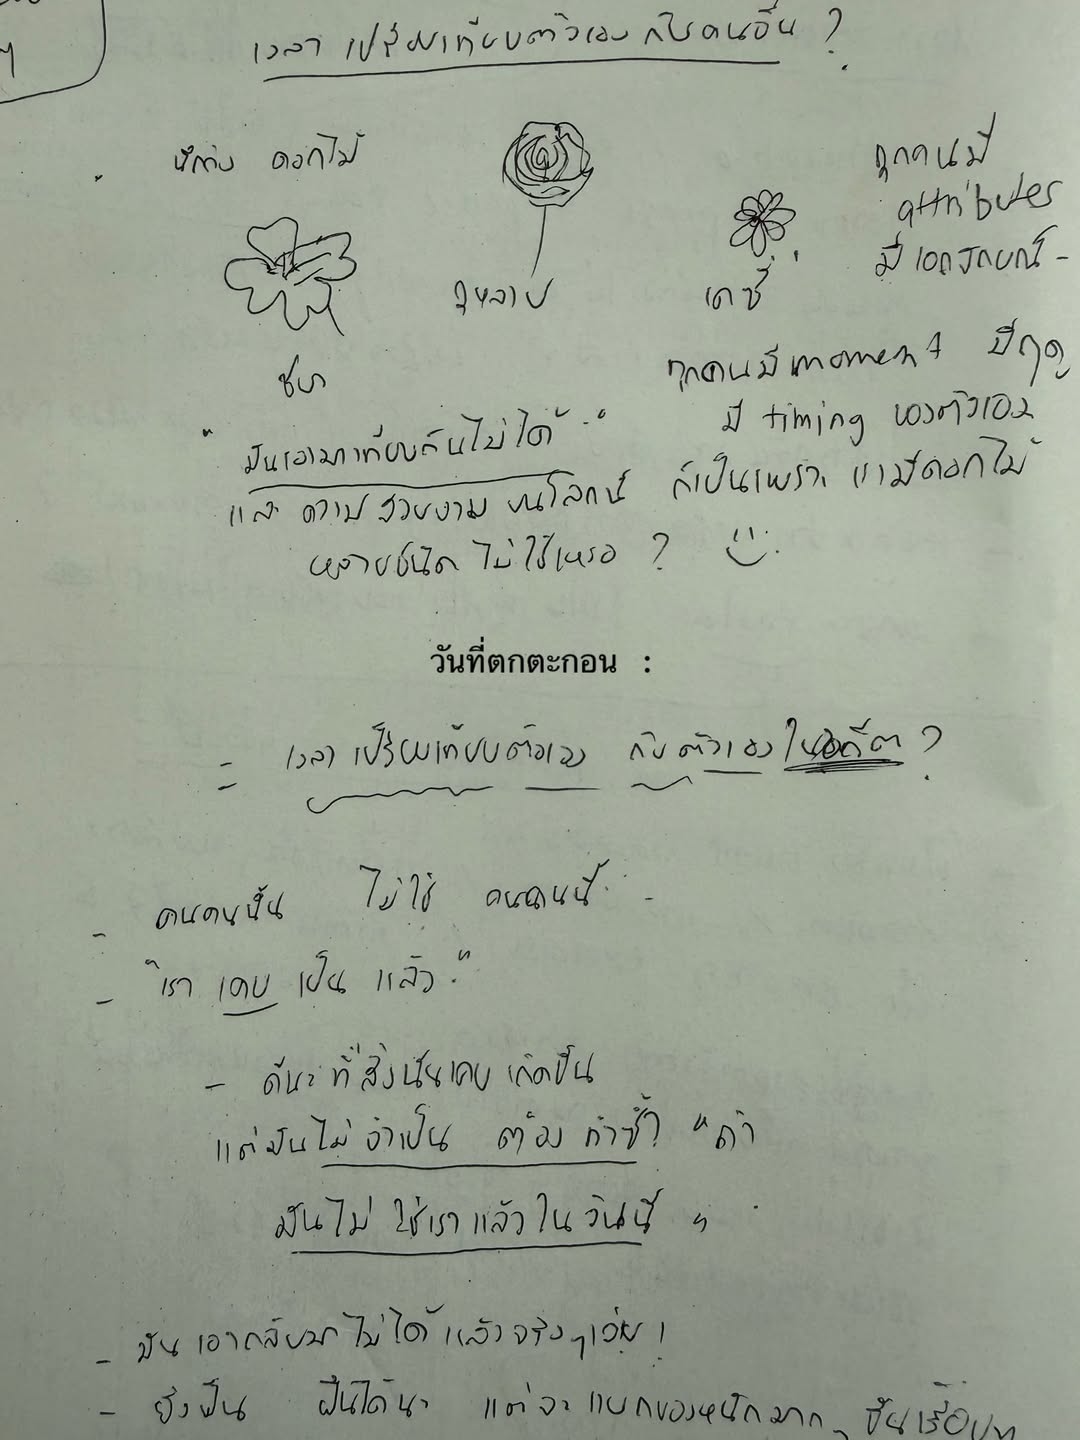 ๆ
เวลา เปรียบเทียบตัวเอง กับคนอื่น ?
นึกถึง ดอกไม้
ทุกคนมี
attributes
มีเอกลักษณ์ -
กุหลาบ
เดซี่
ชบา
ทุกคนมี moment มีฤดู
มี timing ของตัวเอง
"มันเอามาเทียบกันไม่ได้"
และ ความสวยงาม บนโลกนี้ ก็เป็นเพราะ เรามีดอกไม้
หลายชนิด ไม่ใช่เหรอ ?
วันที่ตกตะกอน :
= เวลา เปรียบเทียบตัวเอง กับ ตัวเอง ในอดีต ?
- คนคนนั้น ไม่ใช่ คนคนนี้ -
- "เรา เคย เป็น แล้ว"
- ดีนะ ที่สิ่งนั้นเคย เกิดขึ้น
แต่มันไม่ จำเป็น ต้อง ทำซ้ำ "ถ้า
มันไม่ ใช่เราแล้วในวันนี้"
- มัน เอากลับมาไม่ได้ แล้วจริงๆเว่ย !
- ยิ่งปีน ฝืนได้นะ แต่จะ แบกของหนักมาก ขึ้นเรื่อยๆ